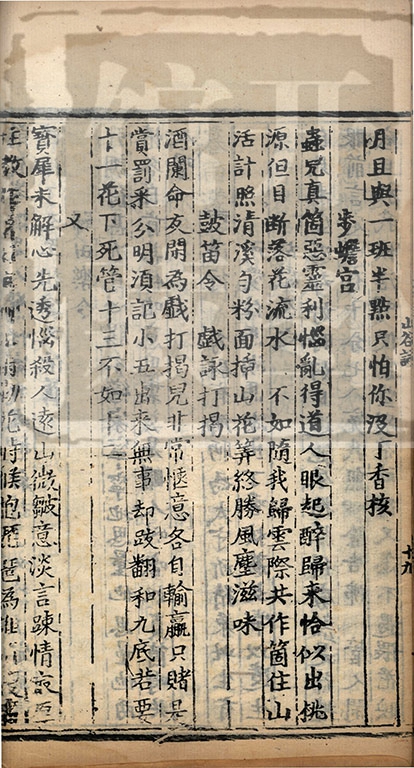 月且與一班半點只怕你没丁香核
步蟾宮
蟲兒真箇惡靈利惱亂得道人眼起醉歸來恰似出桃
源但目斷落花流水 不如隨我歸雲際共作箇住山
活計照清溪勻粉面揷山花筭終勝風塵滋味
鼓笛令 戲詠打揭
酒闌命友閒為戲打揭兒非常愜意各自輸贏只賭是
賞罰采分明須記小五出來無事却跋翻和九底若要
十一花下死管十三不如十二
又
寳犀未解心先透惱殺人遠山微皺意淡言踈情最
教花時候抱琵琶為
山谷詞
十九